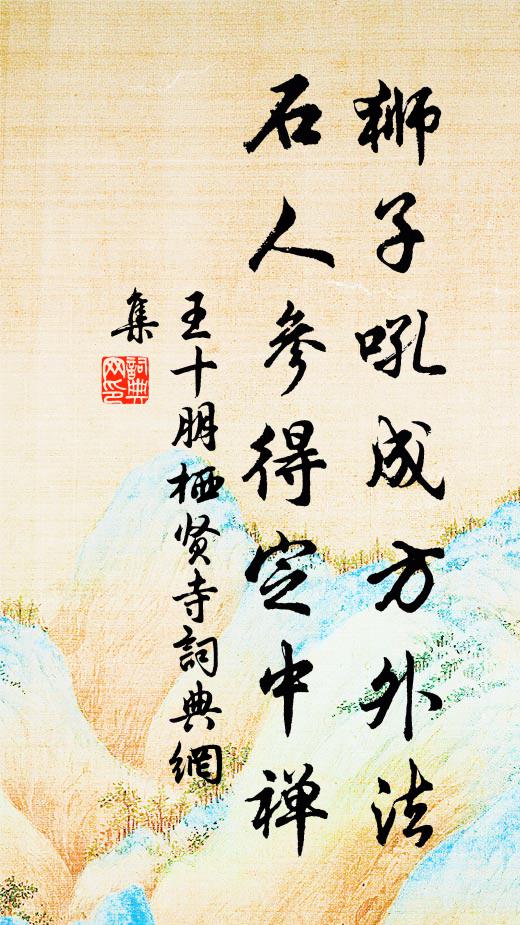 狮子吼成方外法
石人參得定中禅
王十朋栖贤寺詞典網
集
詞典网印